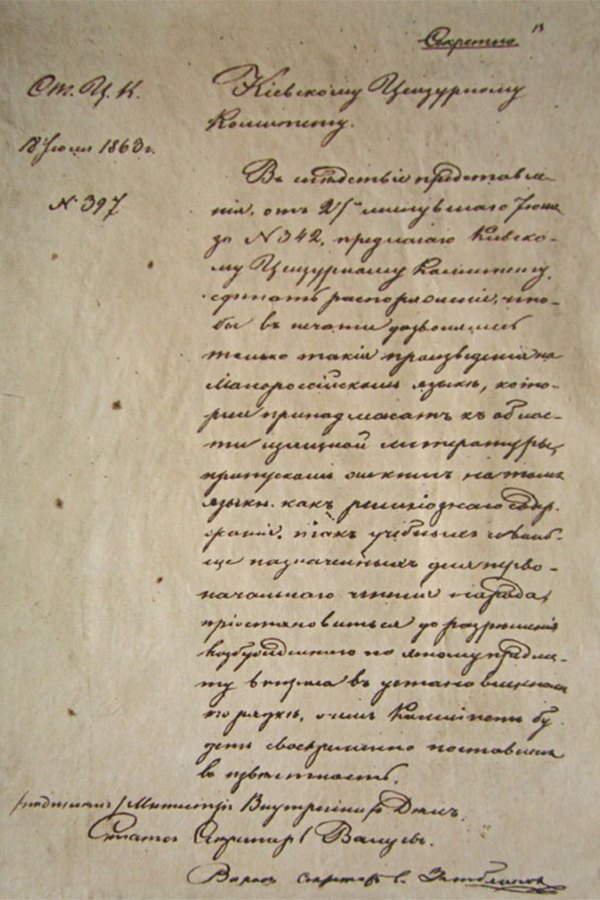 Секретно.
Ст. Ц. К.
18 Іюля 1863 г.
№ 397
Кіевскому Цензурному
Комитету.
Въ слѣдствіе представле-
нія, отъ 27го минувшаго Іюня
за № 342, предлагаю Кіевско-
му Цензурному Комитету,
сдѣлать распоряженіе, что-
бы къ печати дозволялись
только такія произведенія на
Малороссійскомъ языкѣ, кото-
рыя принадлежатъ къ облас-
ти изящной литературы,
пропускомъ же книгъ на томъ
языкѣ, какъ религіознаго содер-
жанія, такъ учебныхъ и вооб-
ще назначенныхъ для перво-
начальнаго чтенія народа,
пріостановиться до разрѣшенія
возбужденнаго по этому предме-
ту вопроса въ установленномъ
порядкѣ, о чемъ Комитетъ бу-
детъ своевременно поставленъ
въ извѣстность.
/подписалъ/ Министръ Внутреннихъ Дѣлъ,
Статсъ Секретарь Валуевъ.
Вѣрно: Секретарь